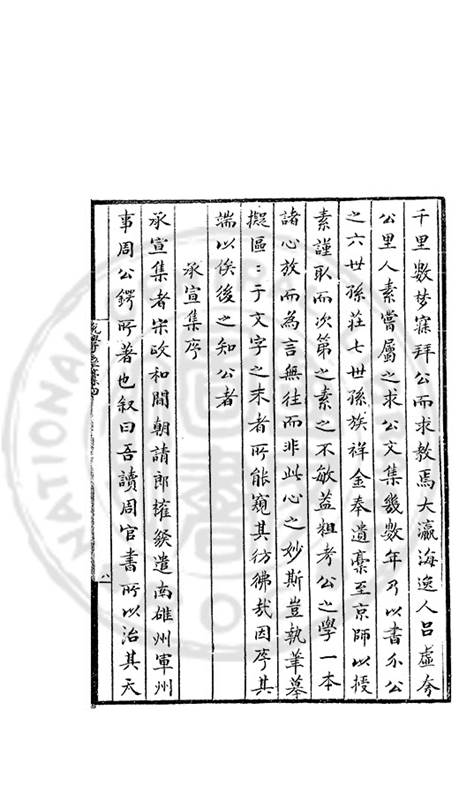 千里數夢寐拜公而求教焉大瀛海逸人呂虛夷
公里人素嘗屬之求公文集幾數年乃以書介公
之六世孫莊七世孫族祥金奉遺稾至京師以授
素謹取而次第之素之不敏蓋粗考公之學一本
諸心放而為言無往而非此心之妙斯豈執筆摹
擬區〻于文字之末者所能窺其彷彿哉因序其
端以俟後之知公者
承宣集序
承宣集者宋政和間朝請郎權發遣南雄州軍州
事周公鍔所著也叙曰吾讀周官書所以治其天
說學齋稾四
八